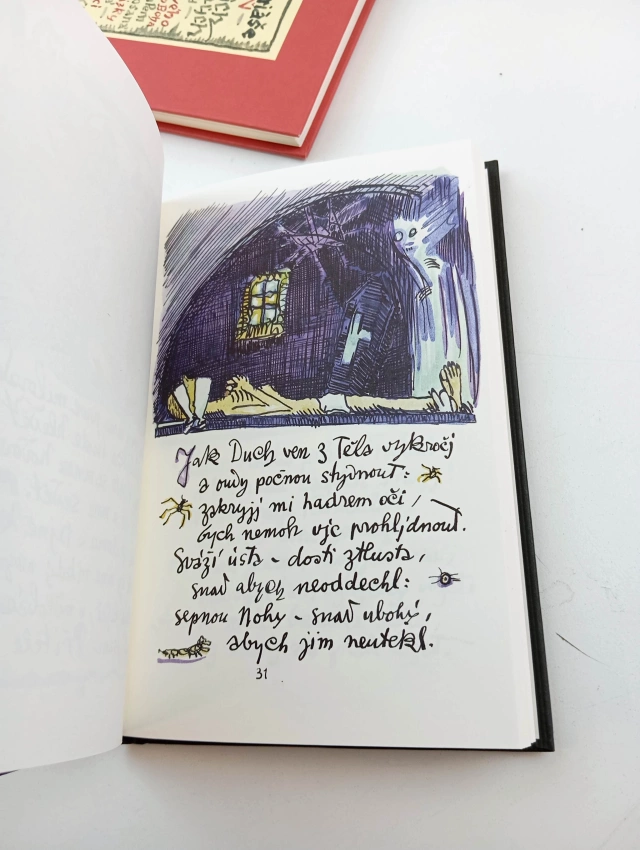 Jak Duch ven z Těla vykročj
a oudy počnou stydnout:
zakryjj mi hadrem oči,
bych nemoh vjc prohljdnout.
Sváží ústa - dosti ztlusta,
snaď abych neoddechl:
sepnou Nohy - snaď ubohý,
abych jim neutekl.
31